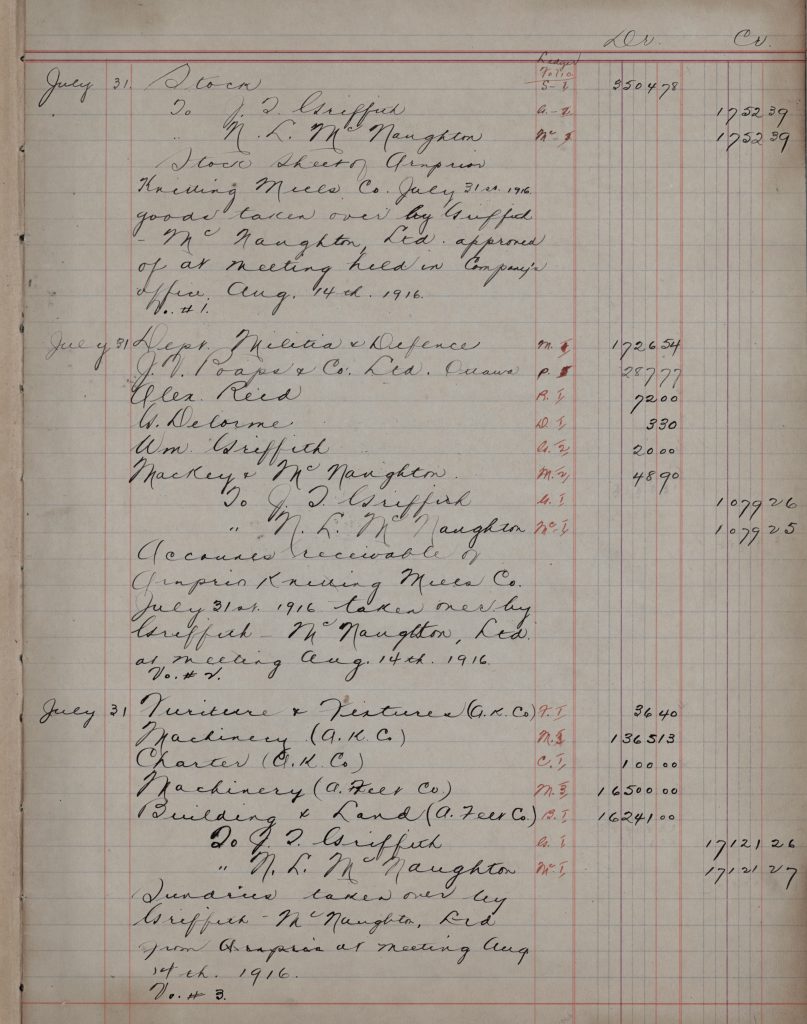 Dr. Cr.
Ledger
Folio
July 31. Stock S-I 3504 78
To J. T. Griffith G-I 1752 39
" N. L. McNaughton Mc-I 1752 39
Stock Sheet of Arnprior
Knitting Mills Co. July 31st. 1916.
goods taken over by Griffith
- McNaughton, Ltd. approved
of at meeting held in Company's
office, Aug. 14th. 1916.
Vo. # 1.
July 31 Dept. Militia & Defence M.I 1726 54
J. V. Poaps & Co. Ltd. Ottawa P.I 287 77
Alex. Reid R.I 72 00
G. Delorme D.I 3 30
Wm. Griffith G.2 20 00
Mackey & McNaughton. M.2 48 90
To J. T. Griffith G.I 1079 26
" N. L. McNaughton Mc.I 1079 25
Accounts receivable of
Arnprior Knitting Mills Co.
July 31st. 1916 taken over by
Griffith - McNaughton, Ltd.
at meeting Aug. 14th. 1916.
Vo. # 2.
July 31 Furniture & Fixtures (A.K.Co) F.I 36 40
Machinery (A.K.Co) M.3 1365 13
Charter (A.K.Co) C.I 100 00
Machinery (A. Felt Co) M.3 16500 00
Building & Land (A. Felt Co) B.I 16241 00
To J. T. Griffith G.I 17121 26
" N. L. McNaughton Mc.I 17121 27
Sundries taken over by
Griffith - McNaughton, Ltd
from Arnprior at meeting Aug
14th. 1916.
Vo. # 3.